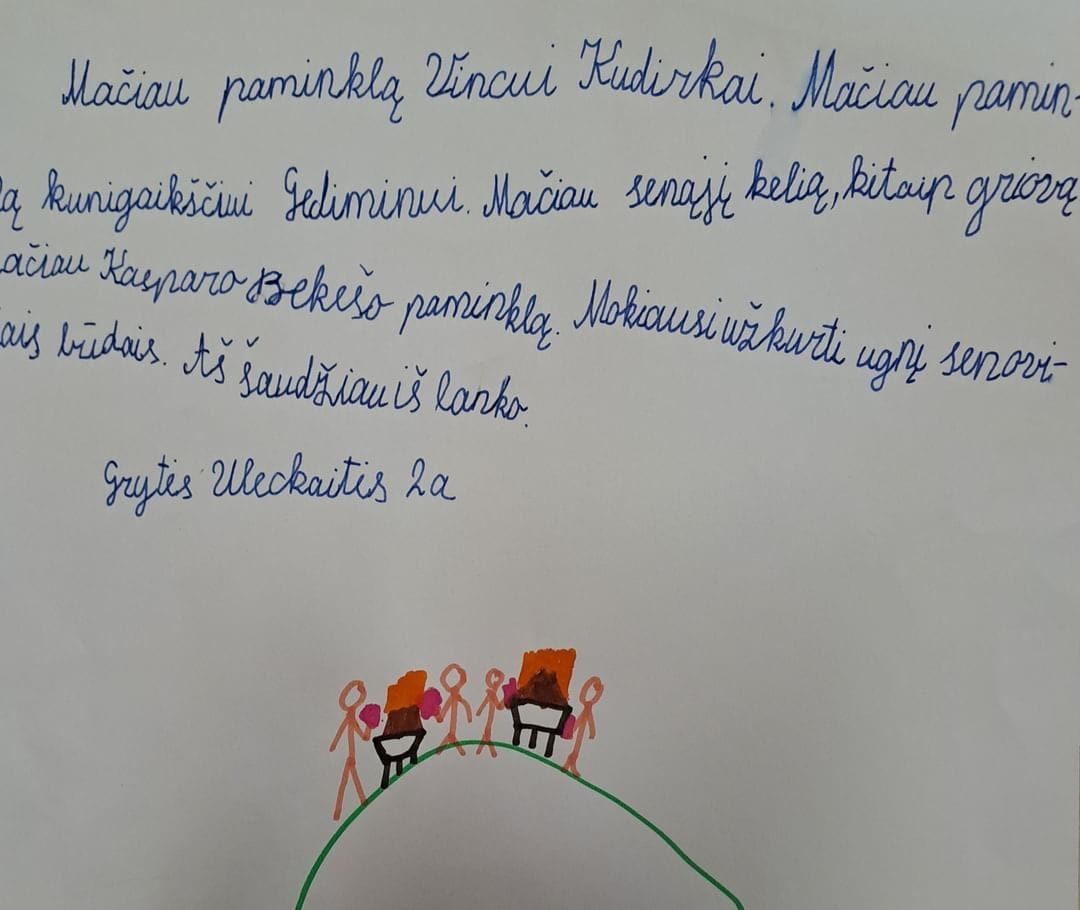 Mačiau paminklą Vincui Kudirkai. Mačiau pamin-
lą kunigaikščiui Gediminui. Mačiau senąjį kelią, kitaip griovą
ačiau Kasparo Bekešo paminklą. Mokiausi užkurti ugnį senovi-
ais būdais. Aš šaudžiau iš lanko.
Grytės Uleckaitis 2a